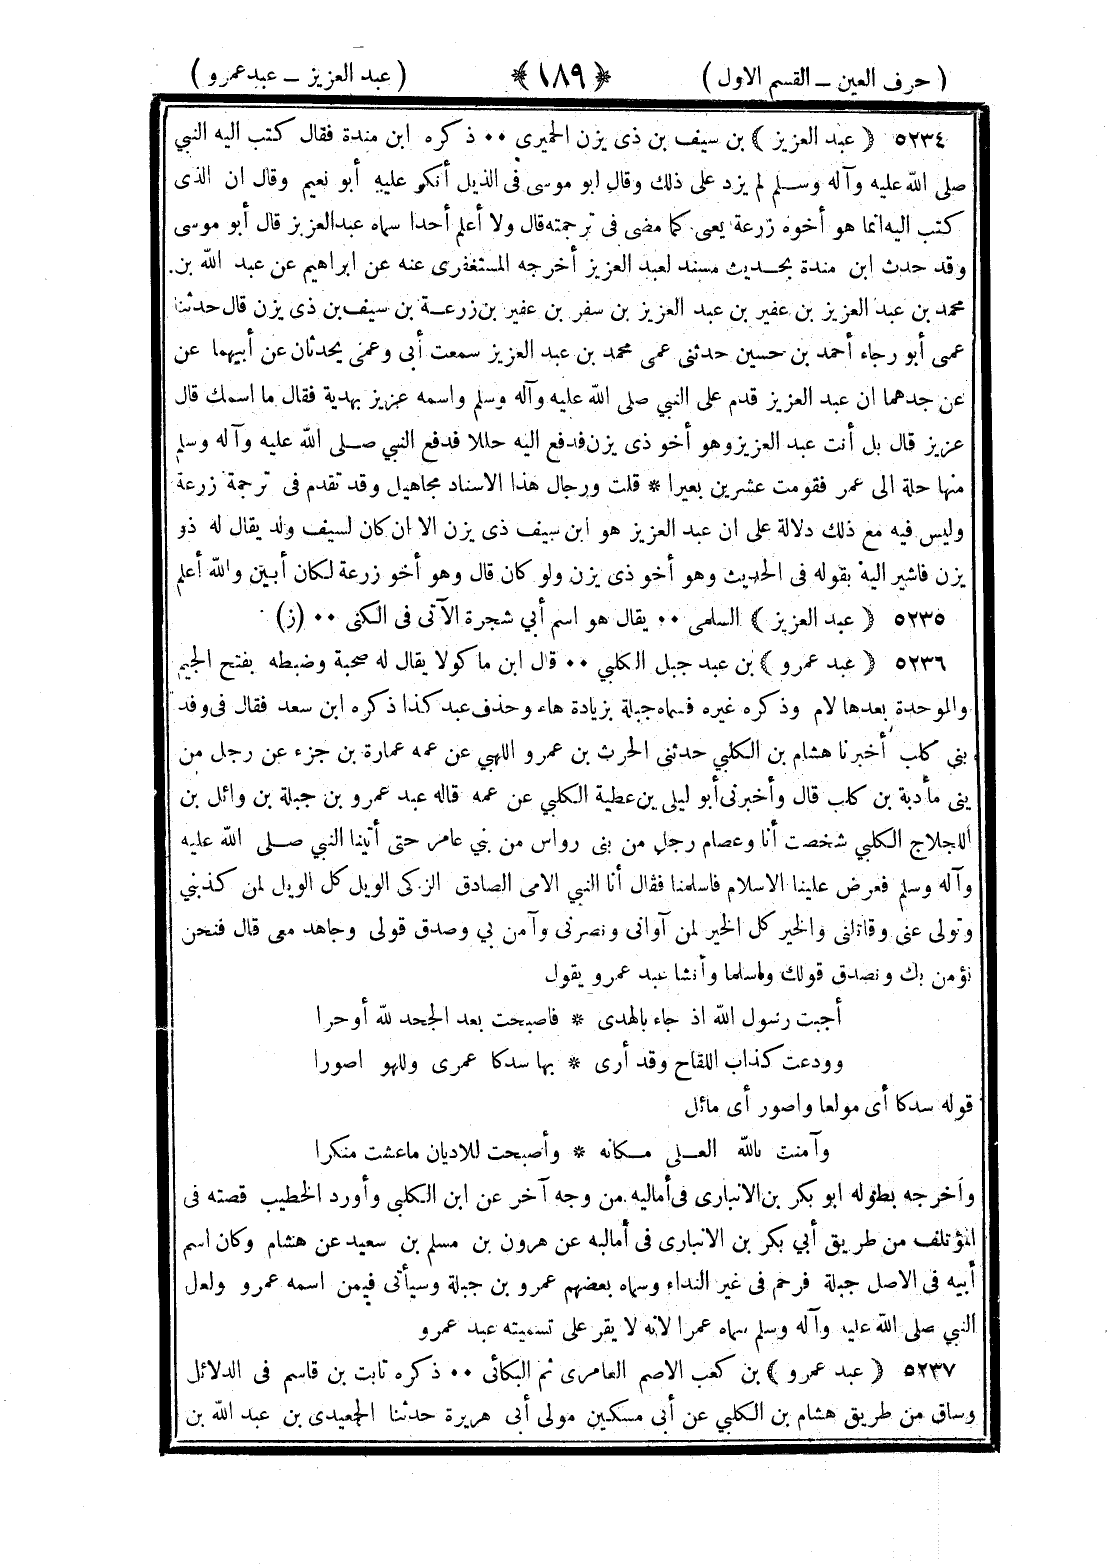 ( حرف العين ــ القسم الاول ) ﴿ ١٨٩ ﴾ ( عبد العزيز ــ عبد عمرو )
٥٢٣٤ ﴿ عبد العزيز ﴾ بن سيف بن ذى يزن الحميرى ۰۰ ذكره ابن مندة فقال كتب اليه النبي
صلى الله عليه وآله وسلم لم يزد على ذلك وقال ابو موسى فى الذيل أنكر عليه أبو نعيم وقال ان الذى
كتب اليه انما هو أخوه زرعة يعى كما مضى فى ترجمته قال ولا أعلم أحدا سماه عبدالعزيز قال أبو موسى
وقد حدث ابن مندة بحديث مسند لعبد العزيز أخرجه المستغفرى عنه عن ابراهيم عن عبد الله بن
محمد بن عبد العزيز بن عفير بن عبد العزيز بن سفر بن عفير بن زرعة بن سيف بن ذى يزن قال حدثنا
عمى أبو رجاء أحمد بن حسين حدثنى عمى محمد بن عبد العزيز سمعت أبى وعمى يحدثان عن أبيهما عن
عن جدهما ان عبد العزيز قدم على النبي صلى الله عليه وآله وسلم واسمه عزيز بهدية فقال ما اسمك قال
عزيز قال بل أنت عبد العزيز وهو أخو ذى يزن فدفع اليه حللا فدفع النبي صلى الله عليه وآله وسلم
منها حلة الى عمر فقومت عشرين بعيرا * قلت ورجال هذا الاسناد مجاهيل وقد تقدم فى ترجمة زرعة
وليس فيه مع ذلك دلالة على ان عبد العزيز هو ابن سيف ذى يزن الا ان كان لسيف ولد يقال له ذو
يزن فاشير اليه بقوله فى الحديث وهو أخو ذى يزن ولو كان قال وهو أخو زرعة لكان أبين والله أعلم
٥٢٣٥ ﴿ عبد العزيز ﴾ السلمى ۰۰ يقال هو اسم أبي شجرة الآتى فى الكنى ۰۰ (ز)
٥٢٣٦ ﴿ عبد عمرو ﴾ بن عبد جبل الكلبي ۰۰ قال ابن ماكولا يقال له صحبة وضبطه بفتح الجيم
والموحدة بعدها لام وذكره غيره فسماه جبلة بزيادة هاء وحذف عبد كذا ذكره ابن سعد فقال فى وفد
بني كلب أخبرنا هشام بن الكلبي حدثنى الحرث بن عمرو اللهبي عن عمه عمارة بن جزء عن رجل من
بنى مأدبة بن كلب قال وأخبرنى أبو ليلى بن عطية الكلبي عن عمه قاله عبد عمرو بن جبلة بن وائل بن
اللجلاج الكلبي شخصت أنا وعصام رجل من بنى رواس من بني عامر حتى أتينا النبي صلى الله عليه
وآله وسلم فعرض علينا الاسلام فاسلمنا فقال أنا النبي الامى الصادق الزكى الويل كل الويل لمن كذبني
وتولى عنى وقاتلنى والخير كل الخير لمن آوانى ونصرنى وآمن بي وصدق قولى وجاهد معى قال فنحن
نؤمن بك ونصدق قولك واسلما وأنشا عبد عمرو يقول
أجبت رسول الله اذ جاء بالهدى * فاصبحت بعد الجحد لله أوحرا
وودعت كذاب اللقاح وقد أرى * بها سدكا عمرى وللهو اصورا
قوله سدكا أى مولعا واصور أى مائل
وآمنت بالله العلى مكانه * وأصبحت للاديان ماعشت منكرا
وأخرجه بطوله ابو بكر بن الانبارى فى أماليه من وجه آخر عن ابن الكلبى وأورد الخطيب قصته فى
المؤتلف من طريق أبي بكر بن الانبارى فى أماليه عن هرون بن مسلم بن سعيد عن هشام وكان اسم
أبيه فى الاصل جبلة فرخم فى غير النداء وسماه بعضهم عمرو بن جبلة وسيأتى فيمن اسمه عمرو ولعل
النبي صلى الله عليه وآله وسلم سماه عمرا لانه لا يقر على تسميته عبد عمرو
٥٢٣٧ ﴿ عبد عمرو ﴾ بن كعب الاصم العامرى ثم البكائى ۰۰ ذكره ثابت بن قاسم فى الدلائل
وساق من طريق هشام بن الكلبي عن أبى مسكين مولى أبى هريرة حدثنا الجعيدى بن عبد الله بن